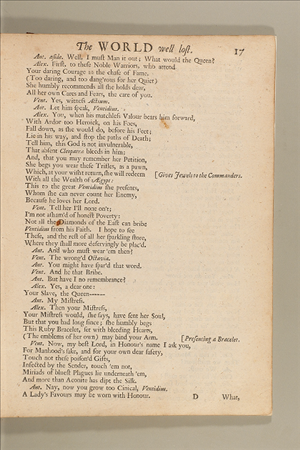 The WORLD well lost. 17
Ant. aside. Well, I must Man it out; What would the Queen?
Alex. First, to these Noble Warriors, who attend
Your daring Courage to the chase of Fame,
(Too daring, and too dang'rous for her Quiet)
She humbly recommends all she holds dear,
All her own Cares and Fears, the care of you.
Vent. Yes, witness Actium.
Ant. Let him speak, Ventidius.
Alex. You, when his matchless Valour bears him forward,
With Ardor too Heroick, on his Foes,
Fall down, as she would do, before his Feet;
Lie in his way, and stop the paths of Death;
Tell him, this God is not invulnerable,
That absent Cleopatra bleeds in him;
And, that you may remember her Petition,
She begs you wear these Trifles, as a pawn,
Which, at your wisht return, she will redeem [Gives Jewels to the Commanders.
With all the Wealth of Ægypt:
This to the great Ventidius she presents,
Whom she can never count her Enemy,
Because he loves her Lord.
Vent. Tell her I'll none on't;
I'm not asham'd of honest Poverty:
Not all the Diamonds of the East can bribe
Ventidius from his Faith. I hope to see
These, and the rest of all her sparkling store,
Where they shall more deservingly be plac'd.
Ant. And who must wear 'em then?
Vent. The wrong'd Octavia.
Ant. You might have spar'd that word.
Vent. And he that Bribe.
Ant. But have I no remembrance?
Alex. Yes, a dear one:
Your Slave, the Queen------
Ant. My Mistress.
Alex. Then your Mistress,
Your Mistress would, she says, have sent her Soul,
But that you had long since; she humbly begs
This Ruby Bracelet, set with bleeding Hearts,
(The emblems of her own) may bind your Arm. [Presenting a Bracelet.
Vent. Now, my best Lord, in Honour's name I ask you,
For Manhood's sake, and for your own dear safety,
Touch not these poison'd Gifts,
Infected by the Sender, touch 'em not,
Miriads of bluest Plagues lie underneath 'em,
And more than Aconite has dipt the Silk.
Ant. Nay, now you grow too Cinical, Ventidius.
A Lady's Favours may be worn with Honour.
D What,